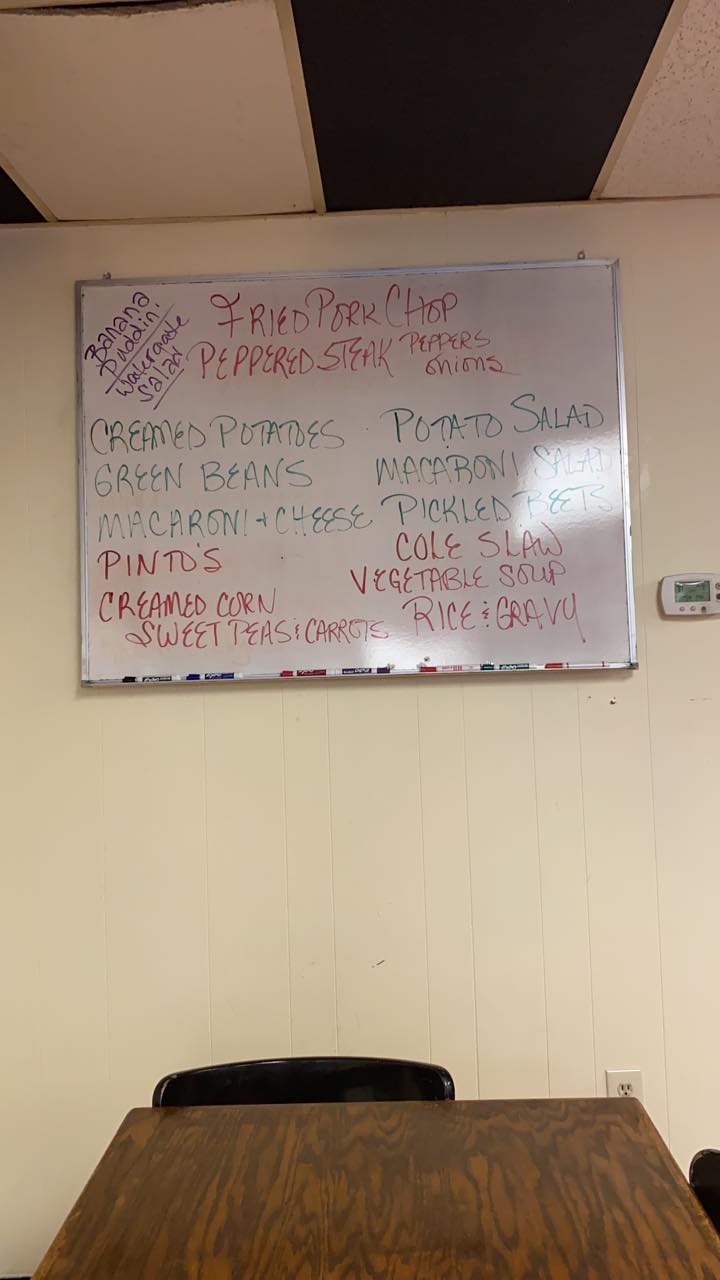 Banana
Puddin'
Watergate
Salad
FRIED PORK CHOP
PEPPERED STEAK PEPPERS
onions
CREAMED POTATOES
GREEN BEANS
MACARONI + CHEESE
PINTO'S
CREAMED CORN
SWEET PEAS & CARROTS
POTATO SALAD
MACARONI SALAD
PICKLED BEETS
COLE SLAW
VEGETABLE SOUP
RICE & GRAVY